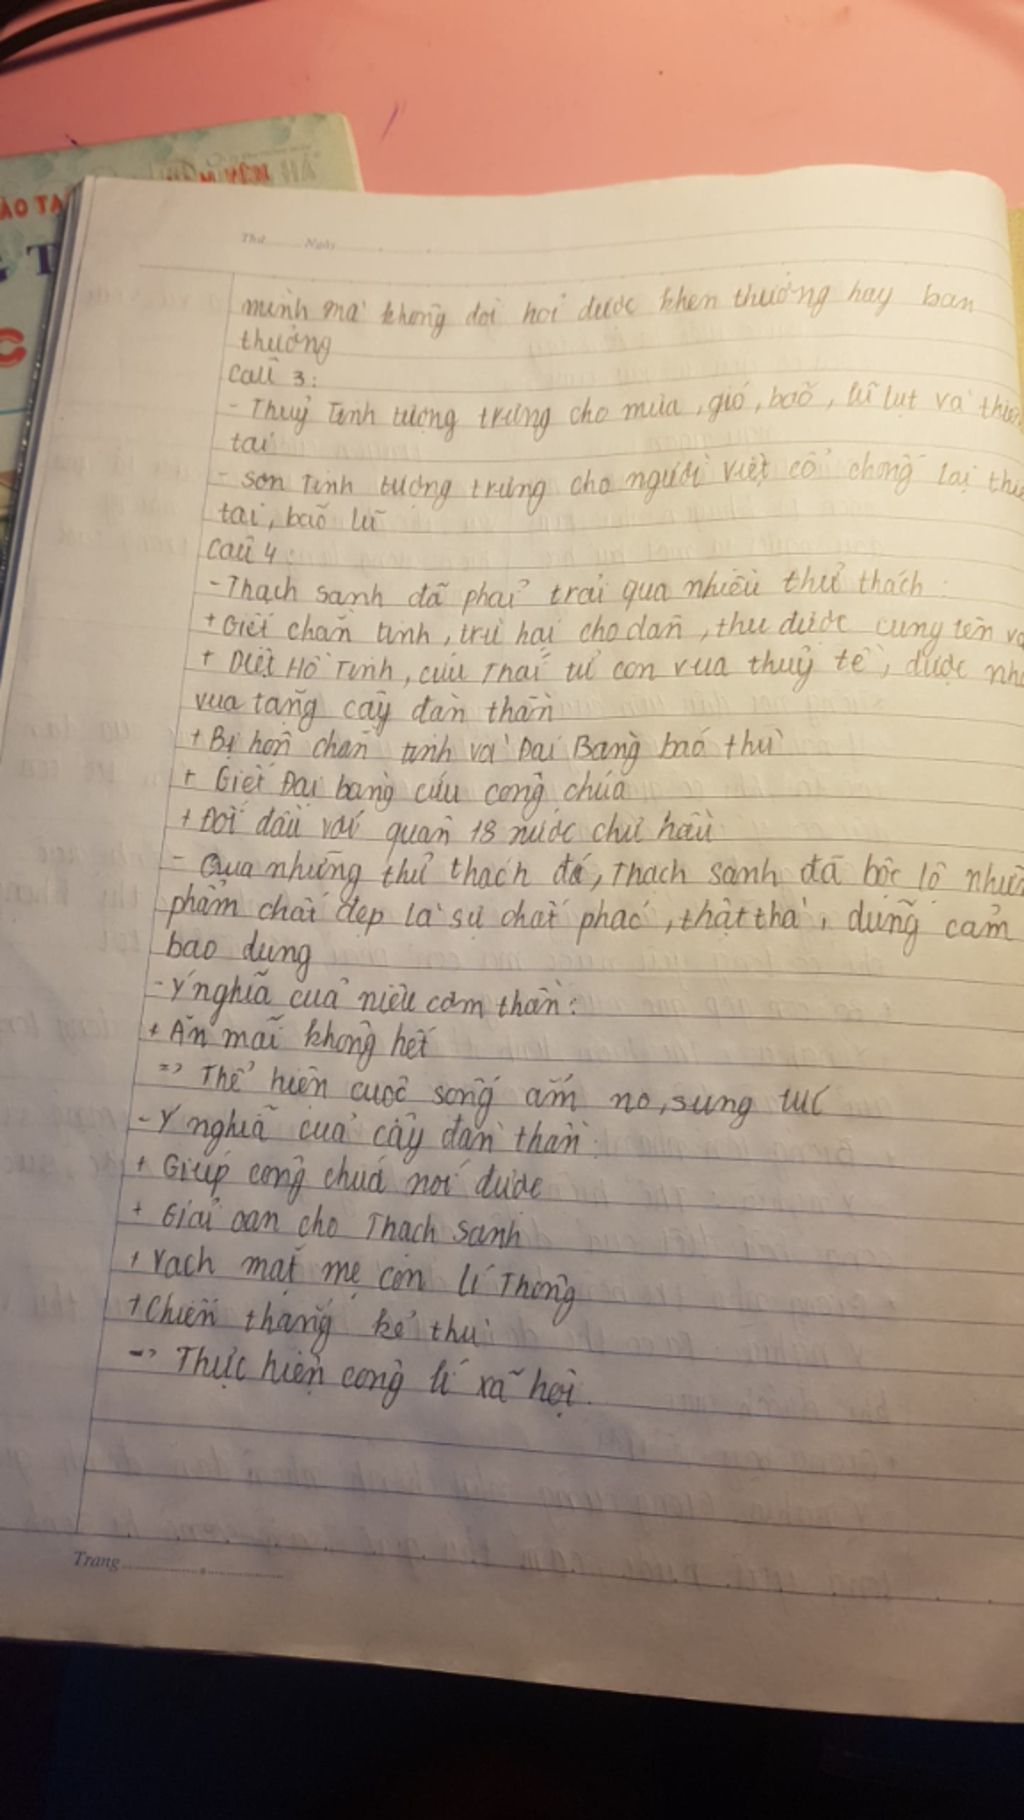 ÀO TẠ
Thứ........Ngày
mình mà không đòi hỏi được khen thưởng hay ban
thưởng
Câu 3:
- Thuỷ Tinh tượng trưng cho mưa, gió, bão, lũ lụt và thiên
tai
- Sơn Tinh tượng trưng cho người Việt cổ chống lại
tai, bão lũ
Câu 4:
- Thạch Sanh đã phải trải qua nhiều thử thách:
+ Giết chằn tinh, trừ hại cho dân, thu được cung tên và
+ Diệt Hồ Tinh, cứu Thái tử con vua thuỷ tề, được
vua tặng cây đàn thần
+ Bị hồn chằn tinh và Đại Bàng báo thù
+ Giết Đại bàng cứu công chúa
+ Đối đầu với quân 18 nước chư hầu
- Qua những thử thách đó, Thạch Sanh đã bộc lộ những
phẩm chất đẹp là sự chất phác, thật thà, dũng cảm
bao dung
- Ý nghĩa của niêu cơm thần:
+ Ăn mãi không hết
=> Thể hiện cuộc sống ấm no, sung túc
- Ý nghĩa của cây đàn thần:
+ Giúp công chúa nói được
+ Giải oan cho Thạch Sanh
+ Vạch mặt mẹ con Lí Thông
+ Chiến thắng kẻ thù
=> Thực hiện công lí xã hội.
Trang